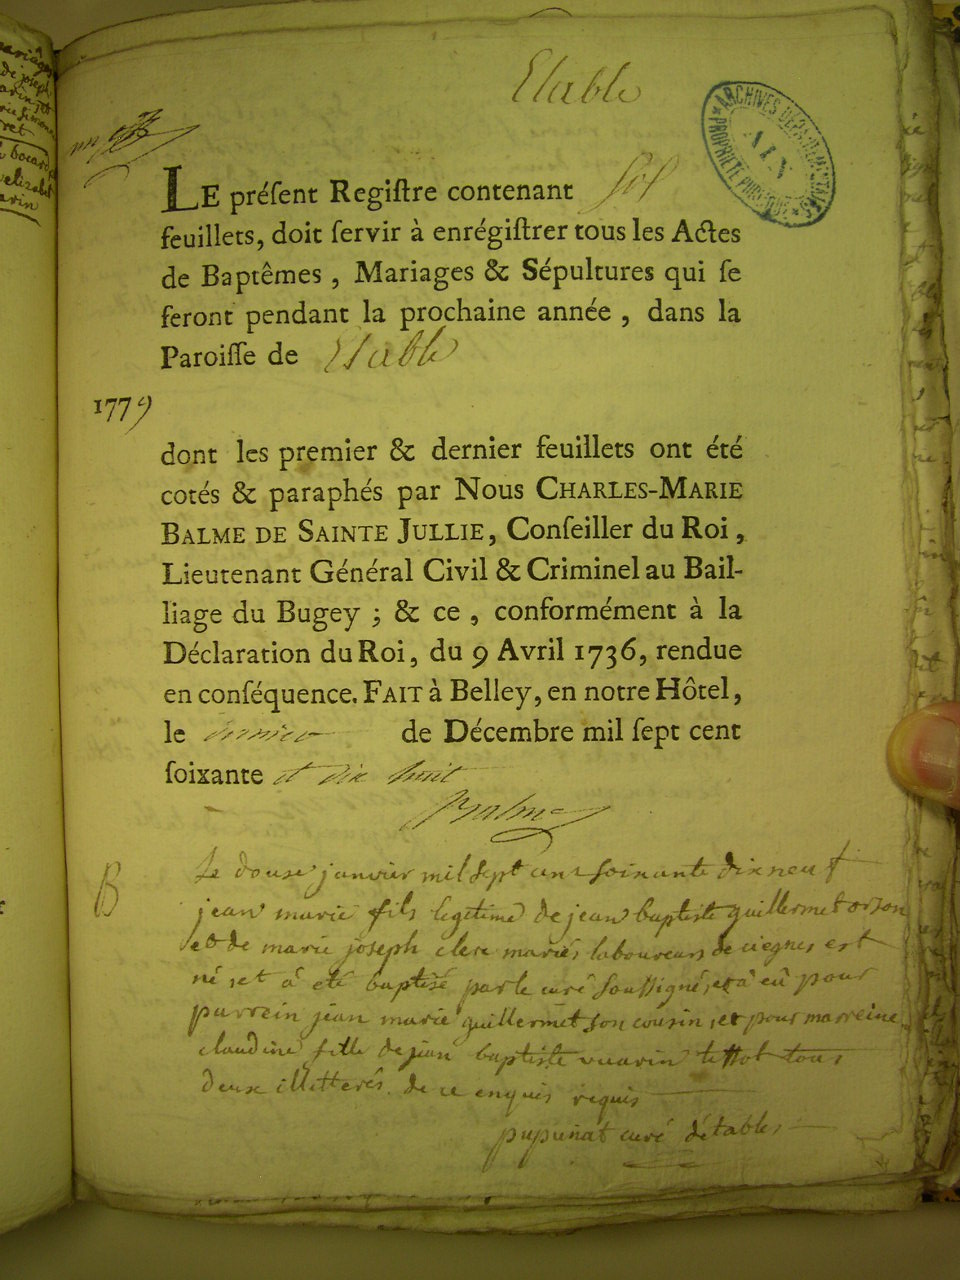 Etable
ARCHIVES DÉPARTEMENTALES
AIN
PROPRIÉTÉ PUBLIQUE
LE préſent Regiſtre contenant
feuillets, doit ſervir à enrégiſtrer tous les Actes
de Baptêmes, Mariages & Sépultures qui ſe
feront pendant la prochaine année, dans la
Paroiſſe de Etable
1779
dont les premier & dernier feuillets ont été
cotés & paraphés par Nous CHARLES-MARIE
BALME DE SAINTE JULLIE, Conſeiller du Roi,
Lieutenant Général Civil & Criminel au Bail-
liage du Bugey ; & ce, conformément à la
Déclaration du Roi, du 9 Avril 1736, rendue
en conſéquence. FAIT à Belley, en notre Hôtel,
le dernier de Décembre mil ſept cent
ſoixante et dix huit
Balme
B
Le douze janvier mil sept cent soixante dix neuf
jean marie fils legitime de jean baptiste guillermet
et de marie joseph clerc mariés laboureurs de ciegnes est
né, et a été baptisé par le curé soussigné, et a eû pour
parrein jean marie guillermet son cousin, et pour marreine
claudine fille de jean baptiste vuarin tous
deux illetterés de ce enquis requis
pupunat curé détables